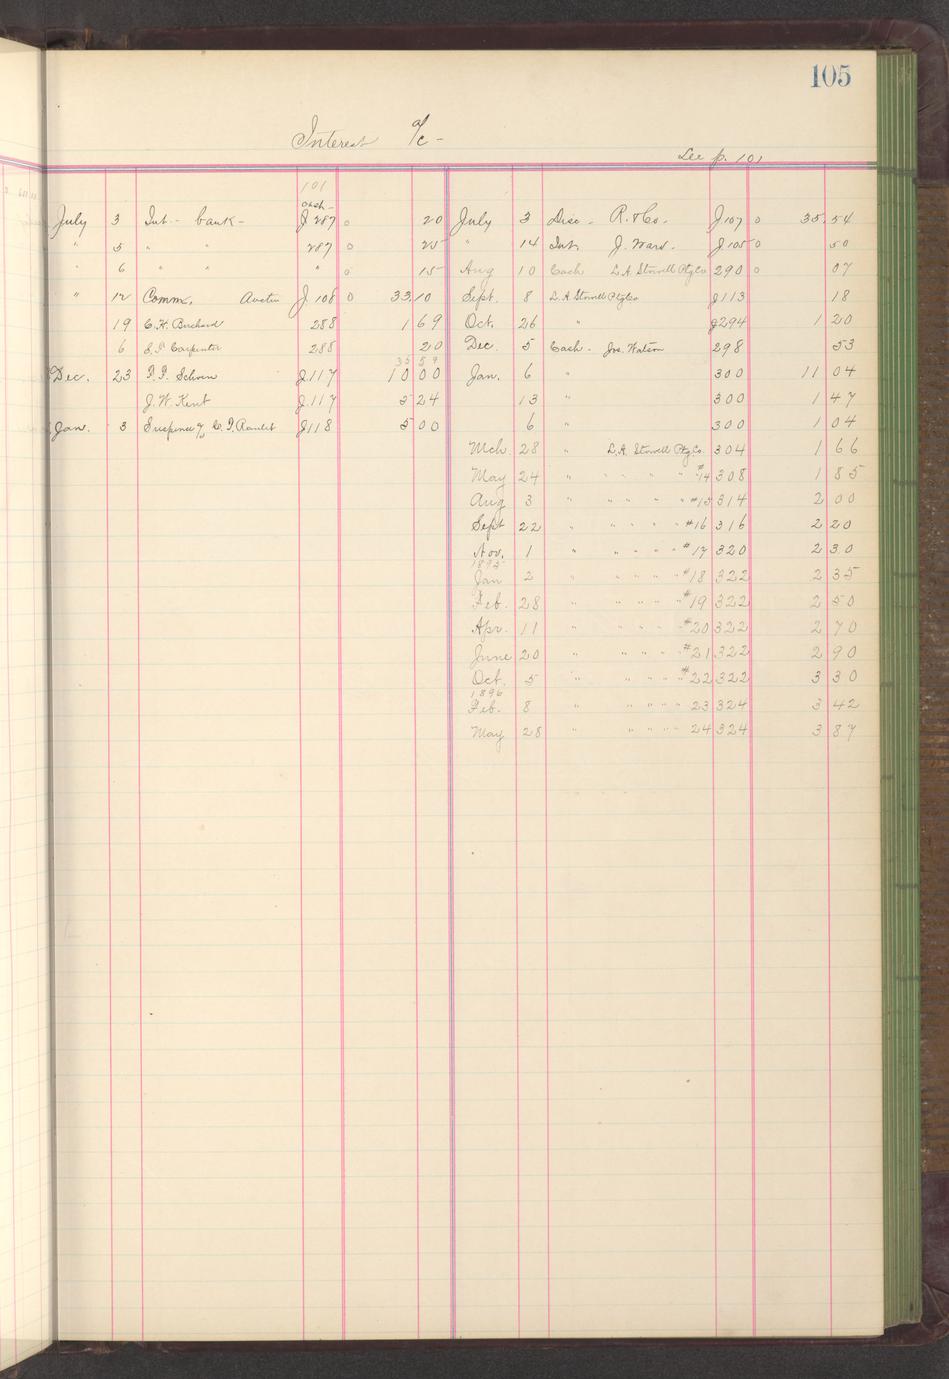 105
Interest a/c -
See p. 101
101
Cash -
July 3 Int - bank - J 287 0 20
" 5 " " 287 0 25
" 6 " " " 0 15
" 12 Comm, Austin J. 108 0 33 10
19 C. H. Burchard 288 1 69
6 E. P. Carpenter 288 20
35 59
Dec. 23 J.117 10 00
J. W. Kent J.117 5 24
Jan. 3 Suspense a/c J118 5 00
July 3 Disc - R. & Co. J107 0 35.54
" 14 Int. J. Ward. J.105 0 50
Aug 10 Cash L.A. Stowell Ptg Co 290 0 07
Sept. 8 L.A Stowell Ptg Co J113 18
Oct. 26 " J294 1 20
Dec. 5 Cash - Jos. Watson 298 53
Jan. 6 " 300 11 04
13 " 300 1 47
6 " 300 1 04
Mch 28 " L.A. Stowell Ptg Co. 304 1 66
May 24 " " " " " #14 308 1 85
Aug 3 " " " " " #15 314 2 00
Sept 22 " " " " " #16 316 2 20
Nov. 1 " " " " " #17 320 2 30
1895
Jan 2 " " " " " #18 322 2 35
Feb. 28 " " " " " #19 322 2 50
Apr. 11 " " " " " #20 322 2 70
June 20 " " " " " #21 322 2 90
Oct. 5 " " " " " #22 322 3 30
1896
Feb. 8 " " " " " 23 324 3 42
May 28 " " " " " 24 324 3 87